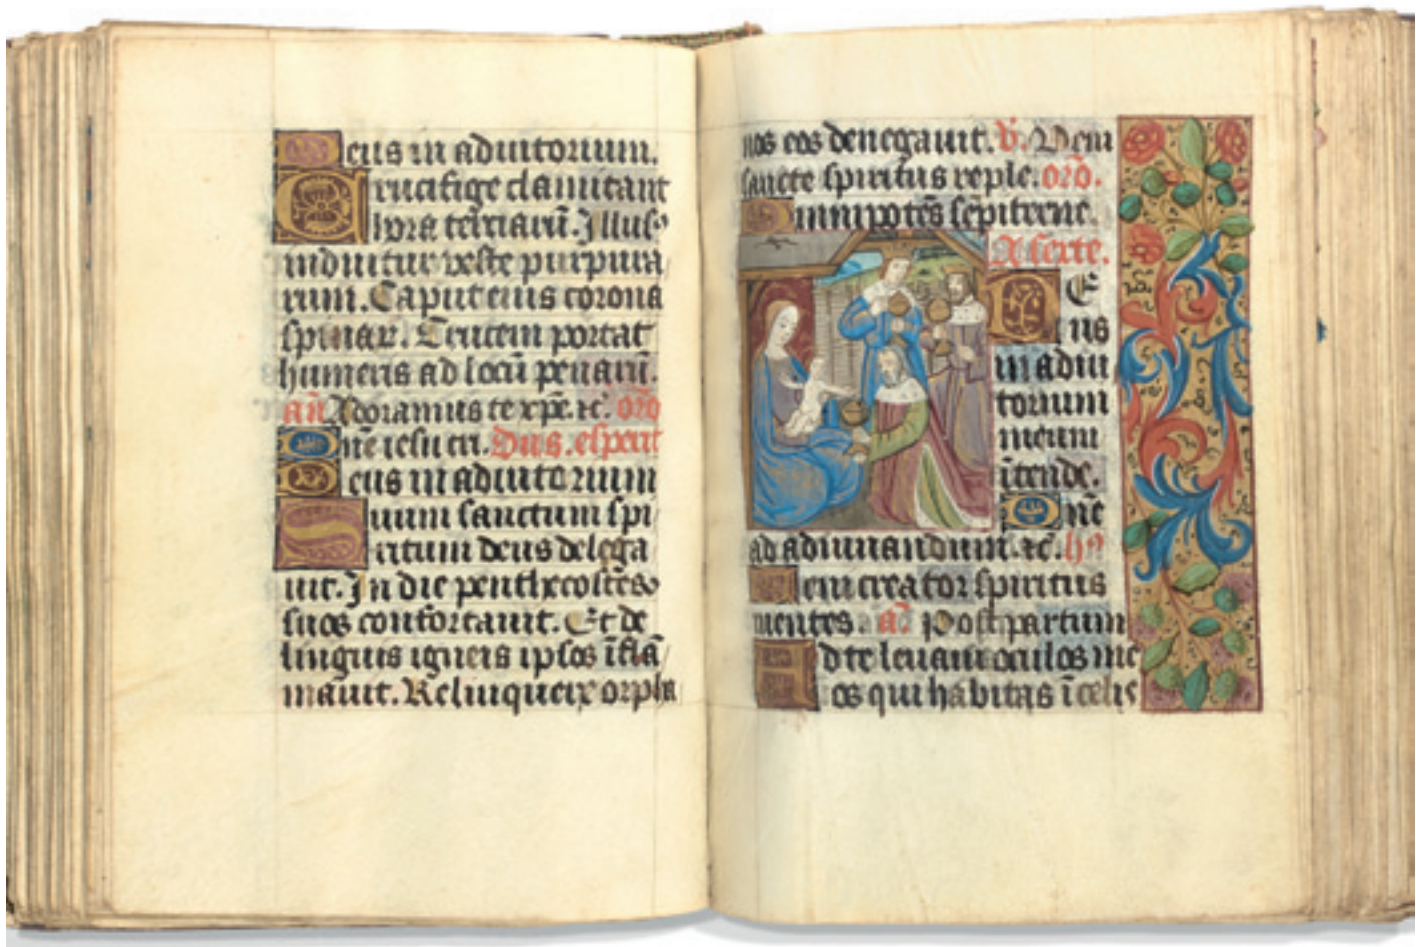 Deus in adiutorium.
Crucifige clamitant
hora terciarū. Illus⁹
induitur veste purpura
rum. Caput eius corona
spinar. Crucem portat
humeris ad locū penarū.
añ. Adoramus te xp̄e. ⁊c̄. orō
Dñe iesu cri. Dus. esperit
Deus in adiutorium
Suum sanctum spi
ritum deus delega
uit. In die penthecostes
suos confortauit. Et de
linguis igneis ipsos īflā
mauit. Relinquere orpha
nos eos denegauit. v̄. Veni
sancte spiritus reple. orō.
Omnipotēs sēpiterne.
A sexte.
DE
us
in adiu
torium
meum
ītende.
Dñe
ad adiuuandum. ⁊c̄. h⁹
Veni creator spiritus
mentes. a. Post partum
Ad te leuaui oculos me
os qui habitas ī celis